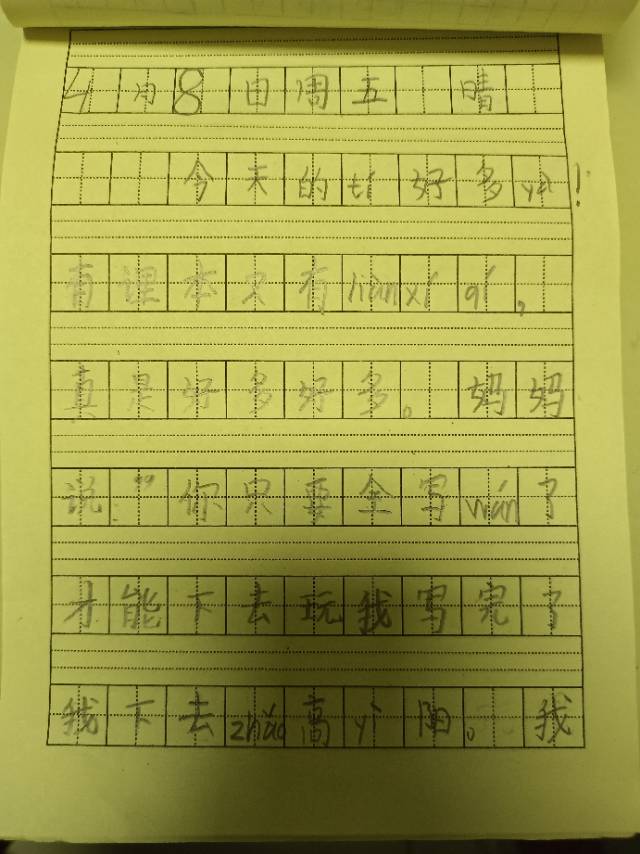 4月8日周五 晴
今天的tí好多ya！
有课本只有liànxí qí，
真是好多好多。妈妈
说：“你只要全写wán了
才能下去玩我写完了
我下去zhǎo高yí阳。我